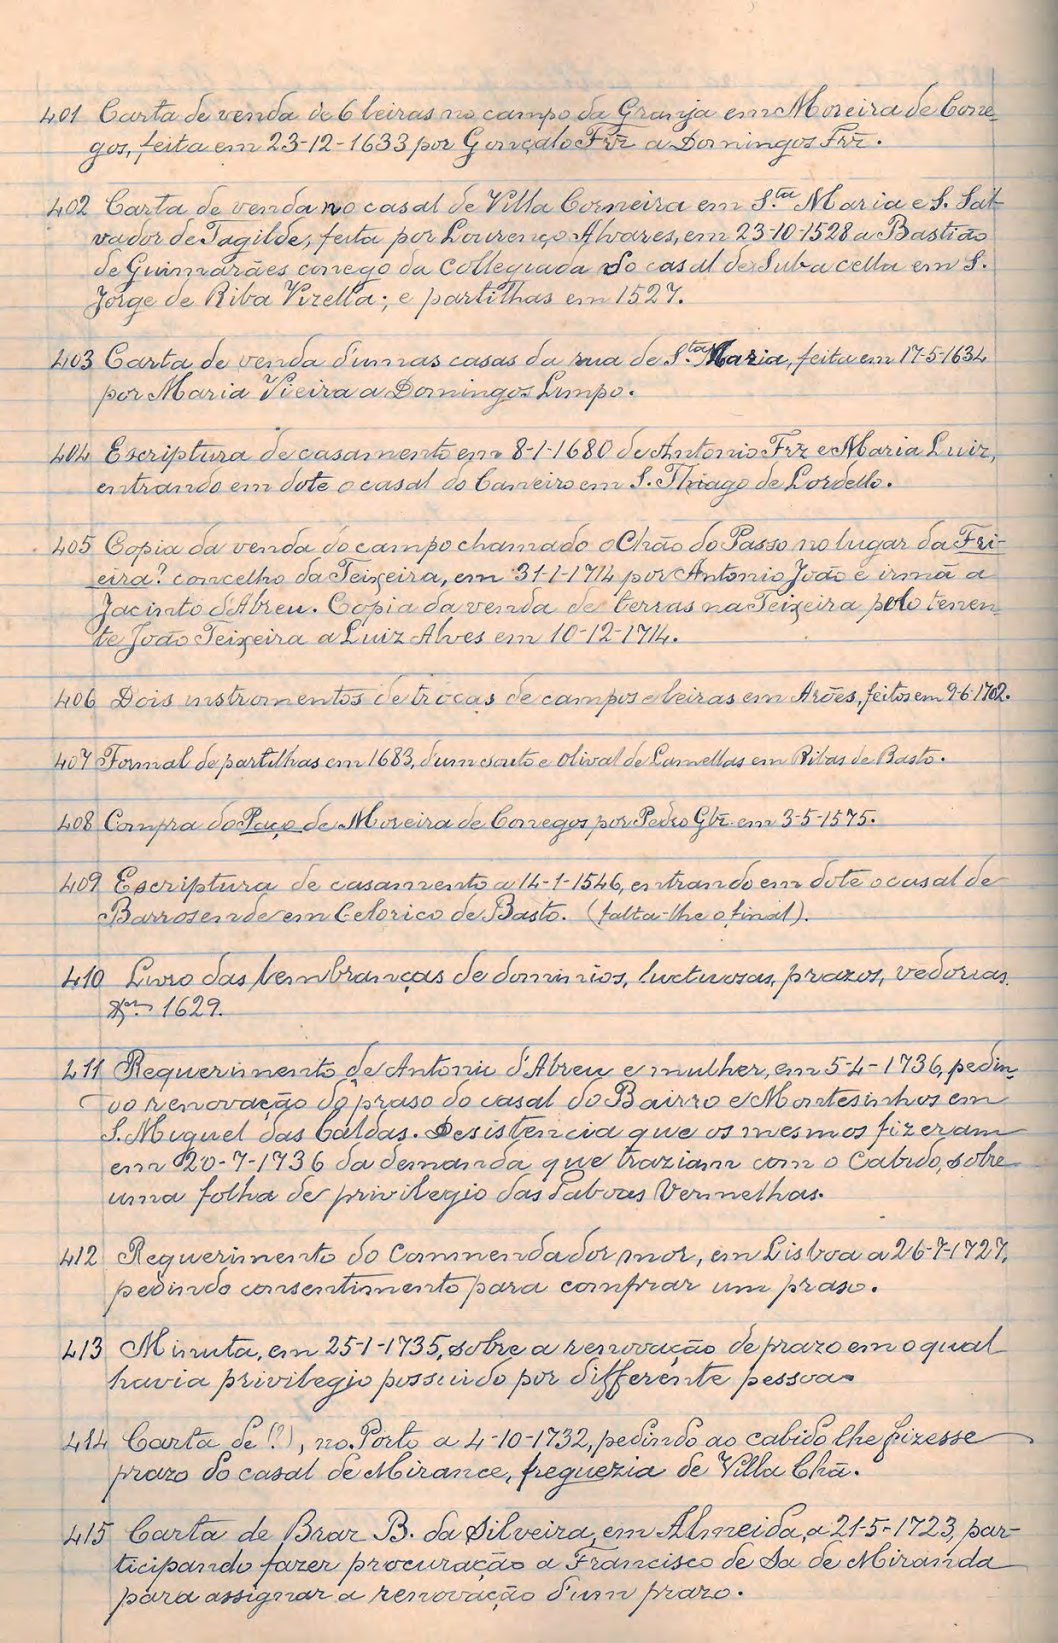 401 Carta de venda de 6 leiras no campo da Granja em Moreira de Cone-
gos, feita em 23-12-1633 por Gonçalo Frz a Domingos Frz.
402 Carta de venda no casal de Villa Corneira em S.ta Maria e S. Sal-
vador de Tagilde, feita por Lourenço Alvares, em 23-10-1528 a Bastião
de Guimarães conego da Collegiada do casal de Subacella em S.
Jorge de Riba Vizella; e partilhas em 1527.
403 Carta de venda d'umas casas da rua de S.ta Maria, feita em 17-5-1634
por Maria Vieira a Domingos Limpo.
404 Escriptura de casamento em 8-1-1680 de Antonio Frz e Maria Luiz,
entrando em dote o casal do Caneiro em S. Thiago de Lordello.
405 Copia da venda do campo chamado o Chão do Passo no lugar da Fri-
eira? concelho da Teixeira, em 31-1-1714 por Antonio João e irmã a
Jacinto d'Abreu. Copia da venda de terras na Teixeira pelo tenen-
te João Teixeira a Luiz Alves em 10-12-1714.
406 Dois instromentos de trocas de campos e leiras em Arões, feitos em 9-6-1702.
407 Formal de partilhas em 1683, d'um souto e olival de Lamellas em Ribas de Basto.
408 Compra do Paço de Moreira de Conegos por Pedro Glz. em 3-5-1575.
409 Escriptura de casamento a 14-1-1546, entrando em dote o casal de
Barrosende em Celorico de Basto. (falta-lhe o final).
410 Livro das lembranças de dominios, luctuosas, prazos, vedorias.
1629.
411 Requerimento de Antonio d'Abreu e mulher, em 5-4-1736, pedin-
do renovação do praso do casal do Bairro e Montesinhos em
S. Miguel das Caldas. Desistencia que os mesmos fizeram
em 20-7-1736 da demanda que traziam com o Cabido, sobre
uma folha de privilegio das Taboas Vermelhas.
412 Requerimento do Commendador mor, em Lisboa a 26-7-1727,
pedindo consentimento para comprar um praso.
413 Minuta, em 25-1-1735, sobre a renovação de prazo em o qual
havia privilegio possuido por differente pessoa.
414 Carta de (?), no Porto a 4-10-1732, pedindo ao cabido lhe fizesse
prazo do casal de Mirance, freguezia de Villa Chã.
415 Carta de Braz B. da Silveira, em Almeida, a 21-5-1723, par-
ticipando fazer procuração a Francisco de Sa de Miranda
para assignar a renovação d'um prazo.